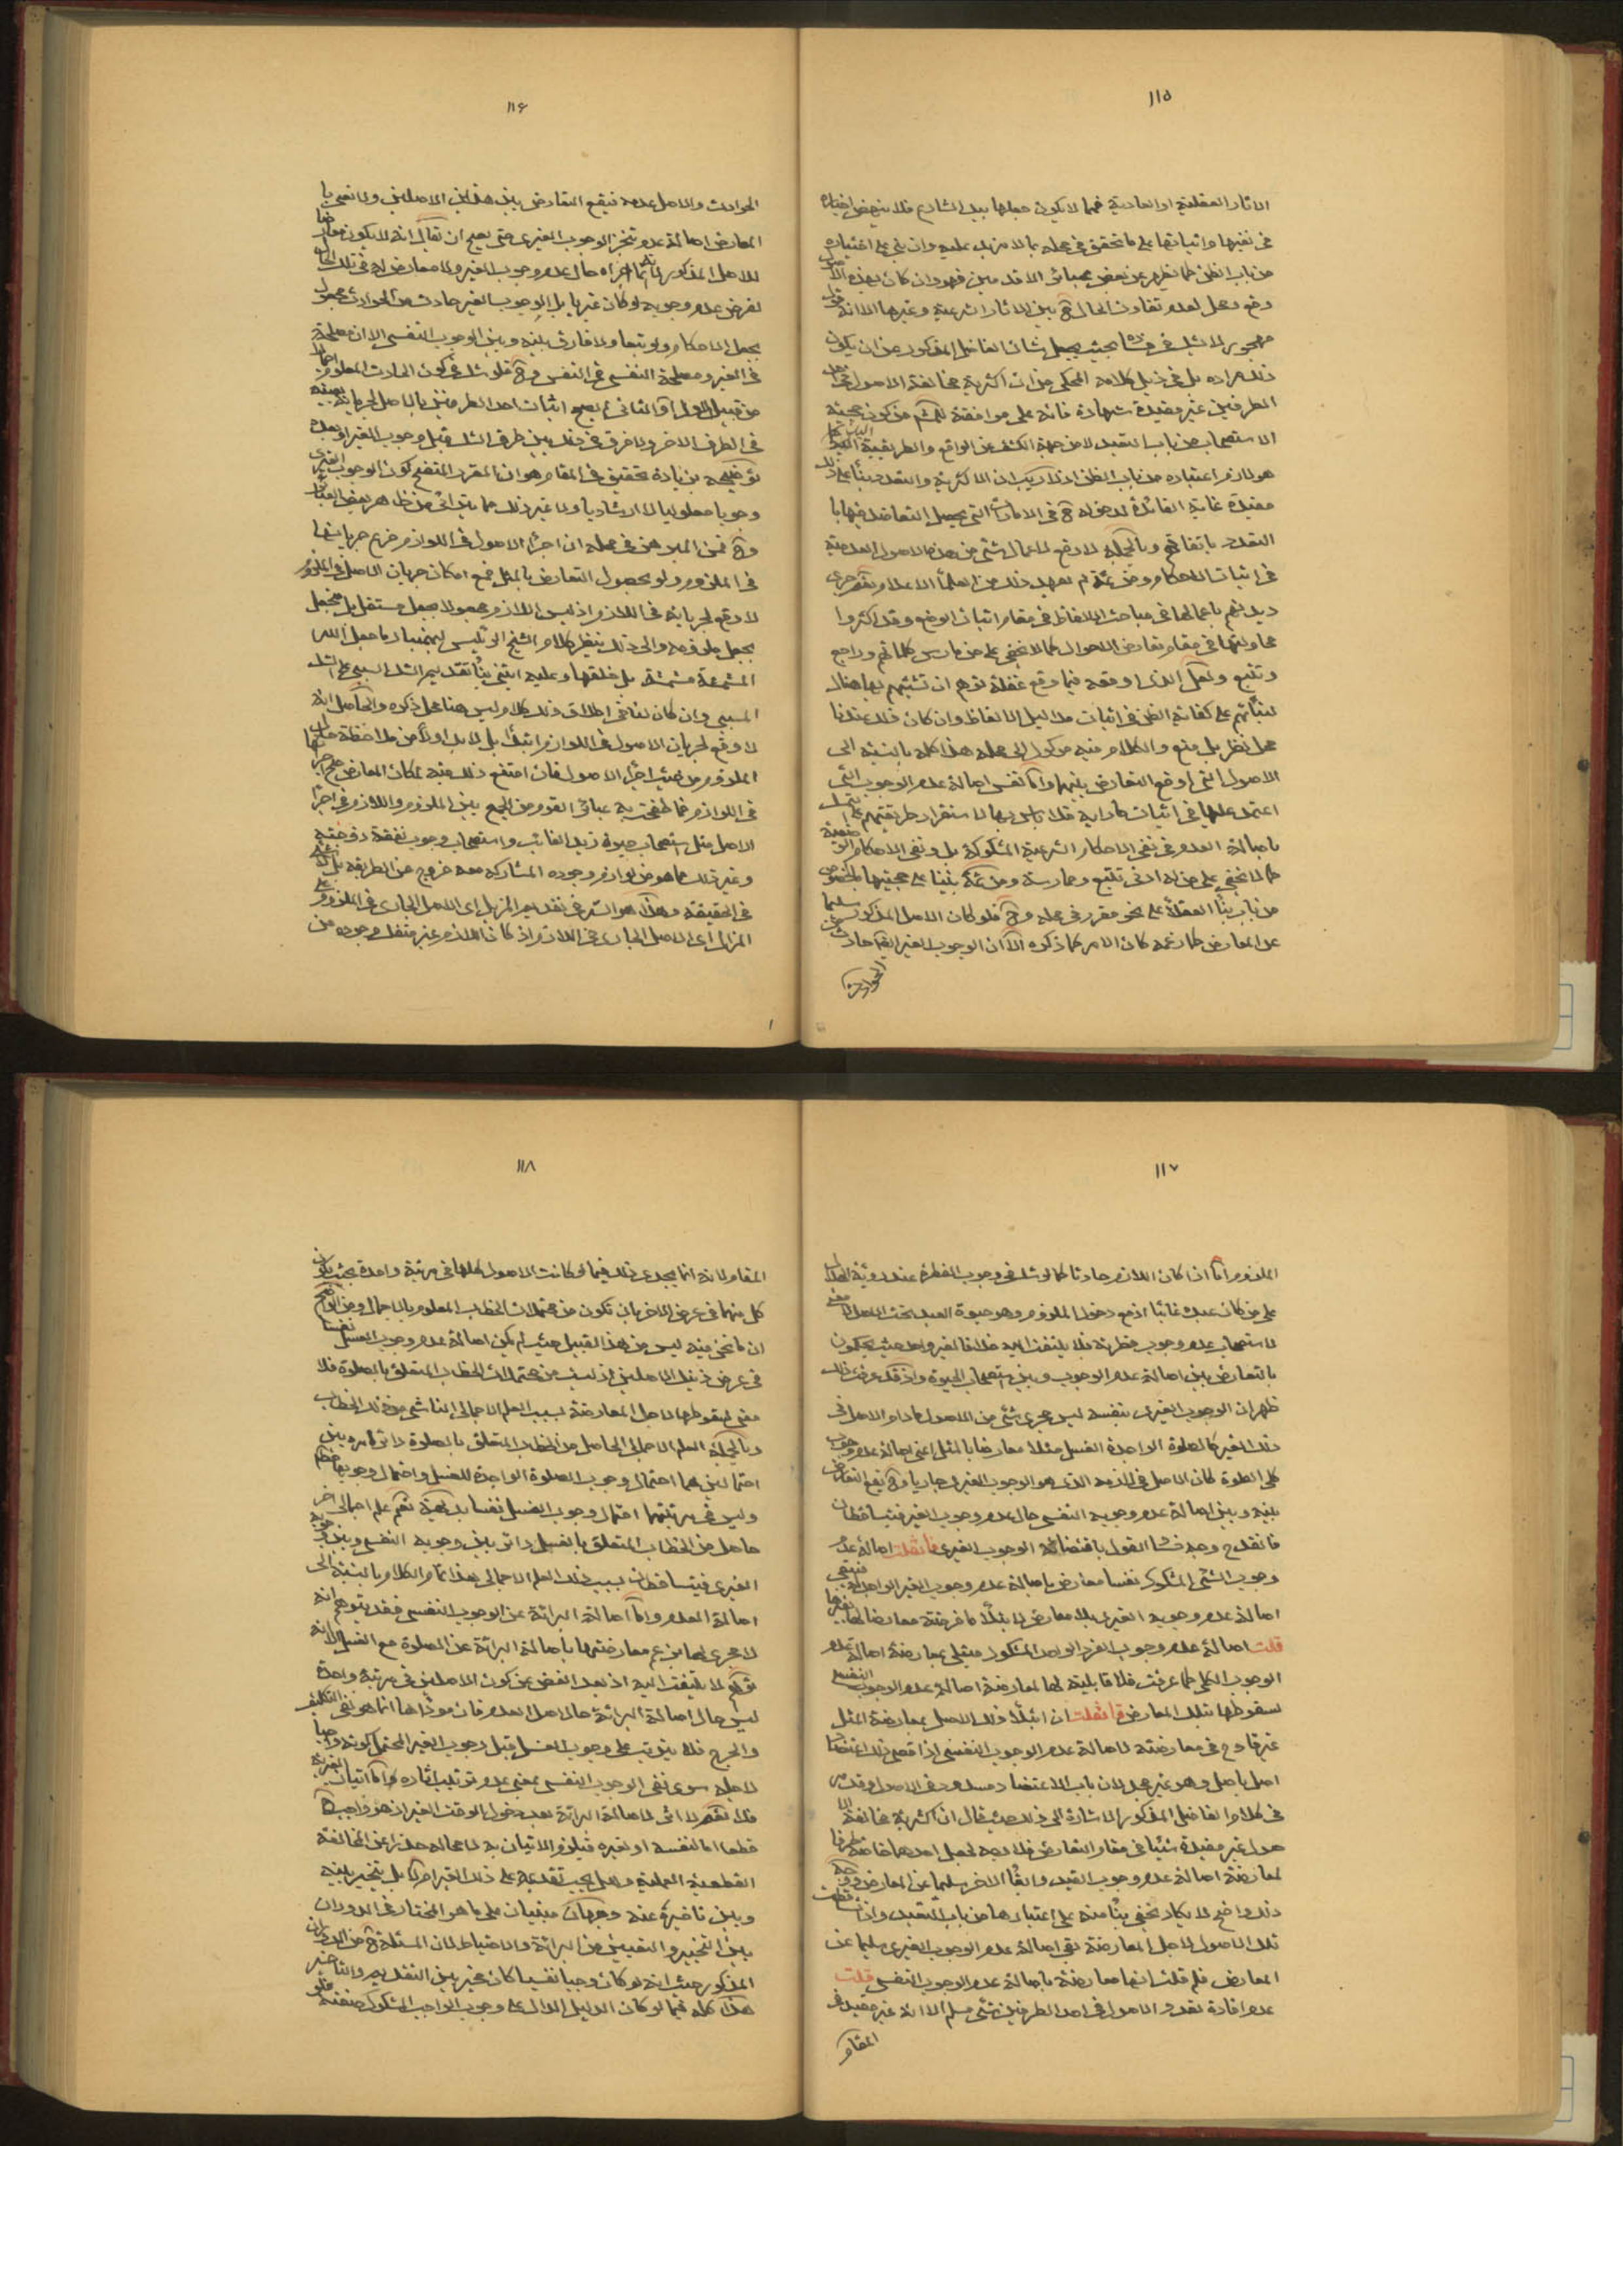 ١١٥
الاثار العقلية او العادية فمما لا يكون جعلها بيد الشارع فلا ينهض اخباره
فى نفيها واثباتها على ما تحقق فى محله بما لا مزيد عليه وان بنى على اعتباره
من باب الظن كما يظهر من بعض عبائر الاقدمين فهو وان كان بهذه الاصول
دفع وجعل لعدم تفاوت الحال ح بين الاثار الشرعية وغيرها الا انه
مهجور لا شك فى بحيث يجعل شان الفاضل المذكور من ان يكون
ذلك مراده بل فى ذيل كلامه المحكى من ان اكثرية مخالفة الاصول فى
الطرفين غير مفيدة شهادة فانه على موافقة من كون حجية
الاستصحاب من باب التعبد لا من جهة الكشف عن الواقع والطريقية
هو لازم اعتباره من باب الظن اذ لا ريب ان الاكثرية والتعدد بناء على ذلك
مفيدة غاية الفائدة لدخوله ح فى الامارات التى يحصل التعاضد فيها با
التعدد باتفاقهم وبالجملة لا دفع لاعمال شئ من هذه الاصول العدمية
فى اثبات الاحكام ومن ثمة لم يعهد ذلك من العلماء الاعلام نعم جرى
ديدنهم باعمالها فى مباحث الالفاظ فى مقام اثبات الوضع وقد اكثروا
محاولتها فى مقام تعارض الاحوال كما لا يخفى على من مارس كلماتهم وراجع
وتتبع ولعل الذى اوقعه فيما وقع غفلة توهم ان تشبثهم بها هناك
لبنائهم على كفاية الظن فى اثبات مداليل الالفاظ وان كان ذلك عندنا
محل نظر بل منع والكلام فيه موكول الى محله هذا كله بالنسبة الى
الاصول التى اوقع التعارض بينها واما نفس اصالة عدم الوجوب التى
اعتمد عليها فى اثبات مارامه فلا باس بها لاستقرار طريقتهم على التمسك
باصالة العدم فى نفى الاحكام الشرعية المشكوكة بل ونفى الاحكام الوضعية
كما لا يخفى على من له ادنى تتبع وممارسة ومن ثمة بنينا على حجيتها بالخصوص
من باب بناء العقلاء على نحو مقرر فى محله وح فلو كان الاصل المذكور سليما
عن المعارض كما زعمه كان الامر كما ذكره الا ان الوجوب الغيرى ايضا حادث من
الحوادث
١١٦
الحوادث والاصل عدمه فيقع التعارض بين هذين الاصلين ولا نعنى با
المعارض اصالة عدم تنجز الوجوب الغيرى حتى يصح ان يقال انه لا يكون معارضا
للاصل المذكور اجراه حال عدم وجوب الغير ولا معارض له فى تلك الحال
لفرض عدم وجوبه لو كان غيريا بل الوجوب الغير حادث من الحوادث مجعول
بجعل الاحكام ولو تبعا ولا فارق بينه وبين الوجوب النفسى الا ان مصلحة
فى الغير ومصلحة النفسى فى النفس وح فلو شك فى كون الحادث المعلوم اجمالا
من قبيل الاول او الثانى لم يصح اثبات احد الطرفين بالاصل لجريانه بعينه
فى الطرف الاخر ولا فرق فى ذلك بين طرف الشك قبل وجوب الغير او بعده
توضيحه بزيادة تحقيق فى المقام هو ان المقرر المتضح كون الوجوب الغيرى
وجوبا معلوليا لا ارشاديا ولا غير ذلك مما يترائى من ظاهر بعض العبائر
وح فمن المبرهن فى محله ان اجراء الاصول فى اللوازم فرع جريانها
فى الملزوم ولو بحصول التعارض بالمثل فمع امكان جريان الاصل فى الملزوم
لا وقع لجريانه فى اللازم اذ ليس اللازم مجعولا بجعل مستقل بل منجعل
بجعل ملزومه والى ذلك ينظر كلام الشيخ الرئيس ما جعل الله
المشمشة مشمشة بل خلقها وعليه ابتنى بناء تقديم الشك السببى على الشك
المسببى وان كان لنا فى اطلاق ذلك كلام ليس هنا محل ذكره والحاصل انه
لا وقع لجريان الاصول فى اللوازم ابتداء بل لا بد اولا من ملاحظة حال
الملزوم من حيث اجراء الاصول فان امتنع ذلك فيه لمكان المعارض صح اجرائها
فى اللوازم فما طفحت به عبائر القوم من الجمع بين الملزوم واللازم فى اجراء
الاصل مثل استصحاب حيوة زيد الغائب واستصحاب وجوب نفقة زوجته
وغير ذلك مما هو من لوازم وجوده المشاركة معه خروج عن الطريقة بل
فى الحقيقة وهذا هو السر فى تقديم المزيل اى الاصل الجارى فى الملزوم على
المزال اى الاصل الجارى فى اللازم اذ كان اللازم غير منفك وجوده عن
١١٧
الملزوم اما اذا كان اللازم حادثا كما لو شك فى وجوب الفطرة عند رؤية الهلال
على من كان عبده غائبا اذ مع دخول الملزوم وهو حيوة العبد تحت الاصل لا معنى
لاستصحاب عدم وجوب فطرته فلا يلتفت اليه خلافا لغير واحد حيث يحكمون
بالتعارض بين اصالة عدم الوجوب وبين استصحاب الحيوة واذ قد عرفت ذلك
ظهر ان الوجوب الغيرى بنفسه ليس مجرى شئ من الاصول مادام الاصل فى
ذلك الغير كالصلوة الواجدة الغسل مثلا معارضا بالمثل اعنى اصالة عدم وجوب
كلى الصلوة كان الاصل فى لازمه الذى هو الوجوب الغيرى جاريا وح يقع التعارض
بينه وبين اصالة عدم وجوبه النفسى حال عدم وجوب الغير فيتساقطان
فانقدح وجه فساد القول باقتضائه الوجوب الغيرى فان قلت اصالة عدم
وجوب الشئ المشكوك نفسا معارض باصالة عدم وجوب الغير الواجد له فتبقى
اصالة عدم وجوبه الغيرى بلا معارض لابتلاء ما فرضته معارضا لها بغيرها
قلت اصالة عدم وجوب الفرد الواجد المشكوك مبتلى بمعارضة اصالة عدم
الوجوب الكلى كما عرفت فلا قابلية لها لمعارضة اصالة عدم الوجوب النفسى
لسقوطها بتلك المعارض فان قلت ان ابتلاء ذلك الاصل بمعارضة المثل
غير قادح فى معارضته لاصالة عدم الوجوب النفسى اذ اقصى ذلك اعتضاد
اصل باصل وهو غير مجد لان باب الاعتضاد مسدود فى الاصول وقد مر
فى كلام الفاضل المذكور الاشارة الى ذلك حيث قال ان اكثرية مخالفة الا
صول غير مفيدة شيئا فى مقام التعارض فلا وجه لجعل احدهما خاصة طرفا
لمعارضة اصالة عدم وجوب القيد وابقاء الاخر سليما عن المعارض ووجه
ذلك واضح لا يكاد يخفى بناء منه على اعتبارها من باب التعبد واذا تساقطت
تلك الاصول لاجل المعارضة بقى اصالة عدم الوجوب الغيرى سليما عن
المعارض فلم قلت انها معارضة باصالة عدم الوجوب النفسى قلت
عدم افادة تعدد الاصول فى احد الطرفين شئ مسلم الا انه غير مفيد فى
المقام
١١٨
المقام لانه انما يجدى ذلك فيما لو كانت الاصول كلها فى مرتبة واحدة بحيث يكون
كل منهما فى عرض الاخر بان تكون من محتملات الخطاب المعلوم بالاجمال ومن الواضح
ان ما نحن فيه ليس من هذا القبيل حيث لم يكن اصالة عدم وجوب الغسل نفسا
فى عرض ذينك الاصلين اذ ليست من محتملات الخطاب المتعلق بالصلوة فلا
معنى لسقوطها لاجل المعارضة بسبب العلم الاجمالى الناشى من ذلك الخطاب
وبالجملة العلم الاجمالى الحاصل من الخطاب المتعلق بالصلوة دائر امره بين
احتمالين هما احتمال وجوب الصلوة الواجدة للغسل واحتمال وجوبها مطلقا
وليس فى مرتبتهما احتمال وجوب الغسل نفسا بالبديهة نعم علم اجمالى اخر
حاصل من الخطاب المتعلق بالغسل دائر بين وجوبه النفسى وبين وجوبه
الغيرى فيتساقطان بسبب ذلك العلم الاجمالى هذا تمام الكلام بالنسبة الى
اصالة العدم واما اصالة البرائة عن الوجوب النفسى فقد يتوهم انه
لا مجرى لها بزعم معارضتها باصالة البرائة عن الصلوة مع الغسل الا انه
توهم لا يلتفت اليه اذ بعد الغض عن كون الاصلين فى مرتبة واحدة
ليس حال اصالة البرائة حال اصل العدم فان مؤداها انما هو نفى التكليف
والحرج فلا يترتب على وجوب الغسل قبل وجوب الغير المحتمل كونه واجبا
لاجله سوى نفى الوجوب النفسى بمعنى عدم ترتيب اثاره واما اثبات الغيرية
فلا نعم لا اثر لاصالة البرائة بعد دخول الوقت الغير اذ هو واجب ح
قطعا اما لنفسه او لغيره فيلزم الاتيان به لا محالة حذرا عن المخالفة
القطعية العملية وهل يجب تقديمه على ذلك الغير ام لا بل يتخير بينه
وبين تاخيره عنه وجهان مبنيان على ما هو المختار فى الدوران
بين التخيير والتعيين من البرائة والاحتياط لان المسئلة ح من الدوران
المذكور حيث انه لو كان واجبا نفسيا كان مخير بين التقديم والتاخير
هذا كله فيما لو كان الدليل الدال على وجوب الواجب المشكوك صفته فلو